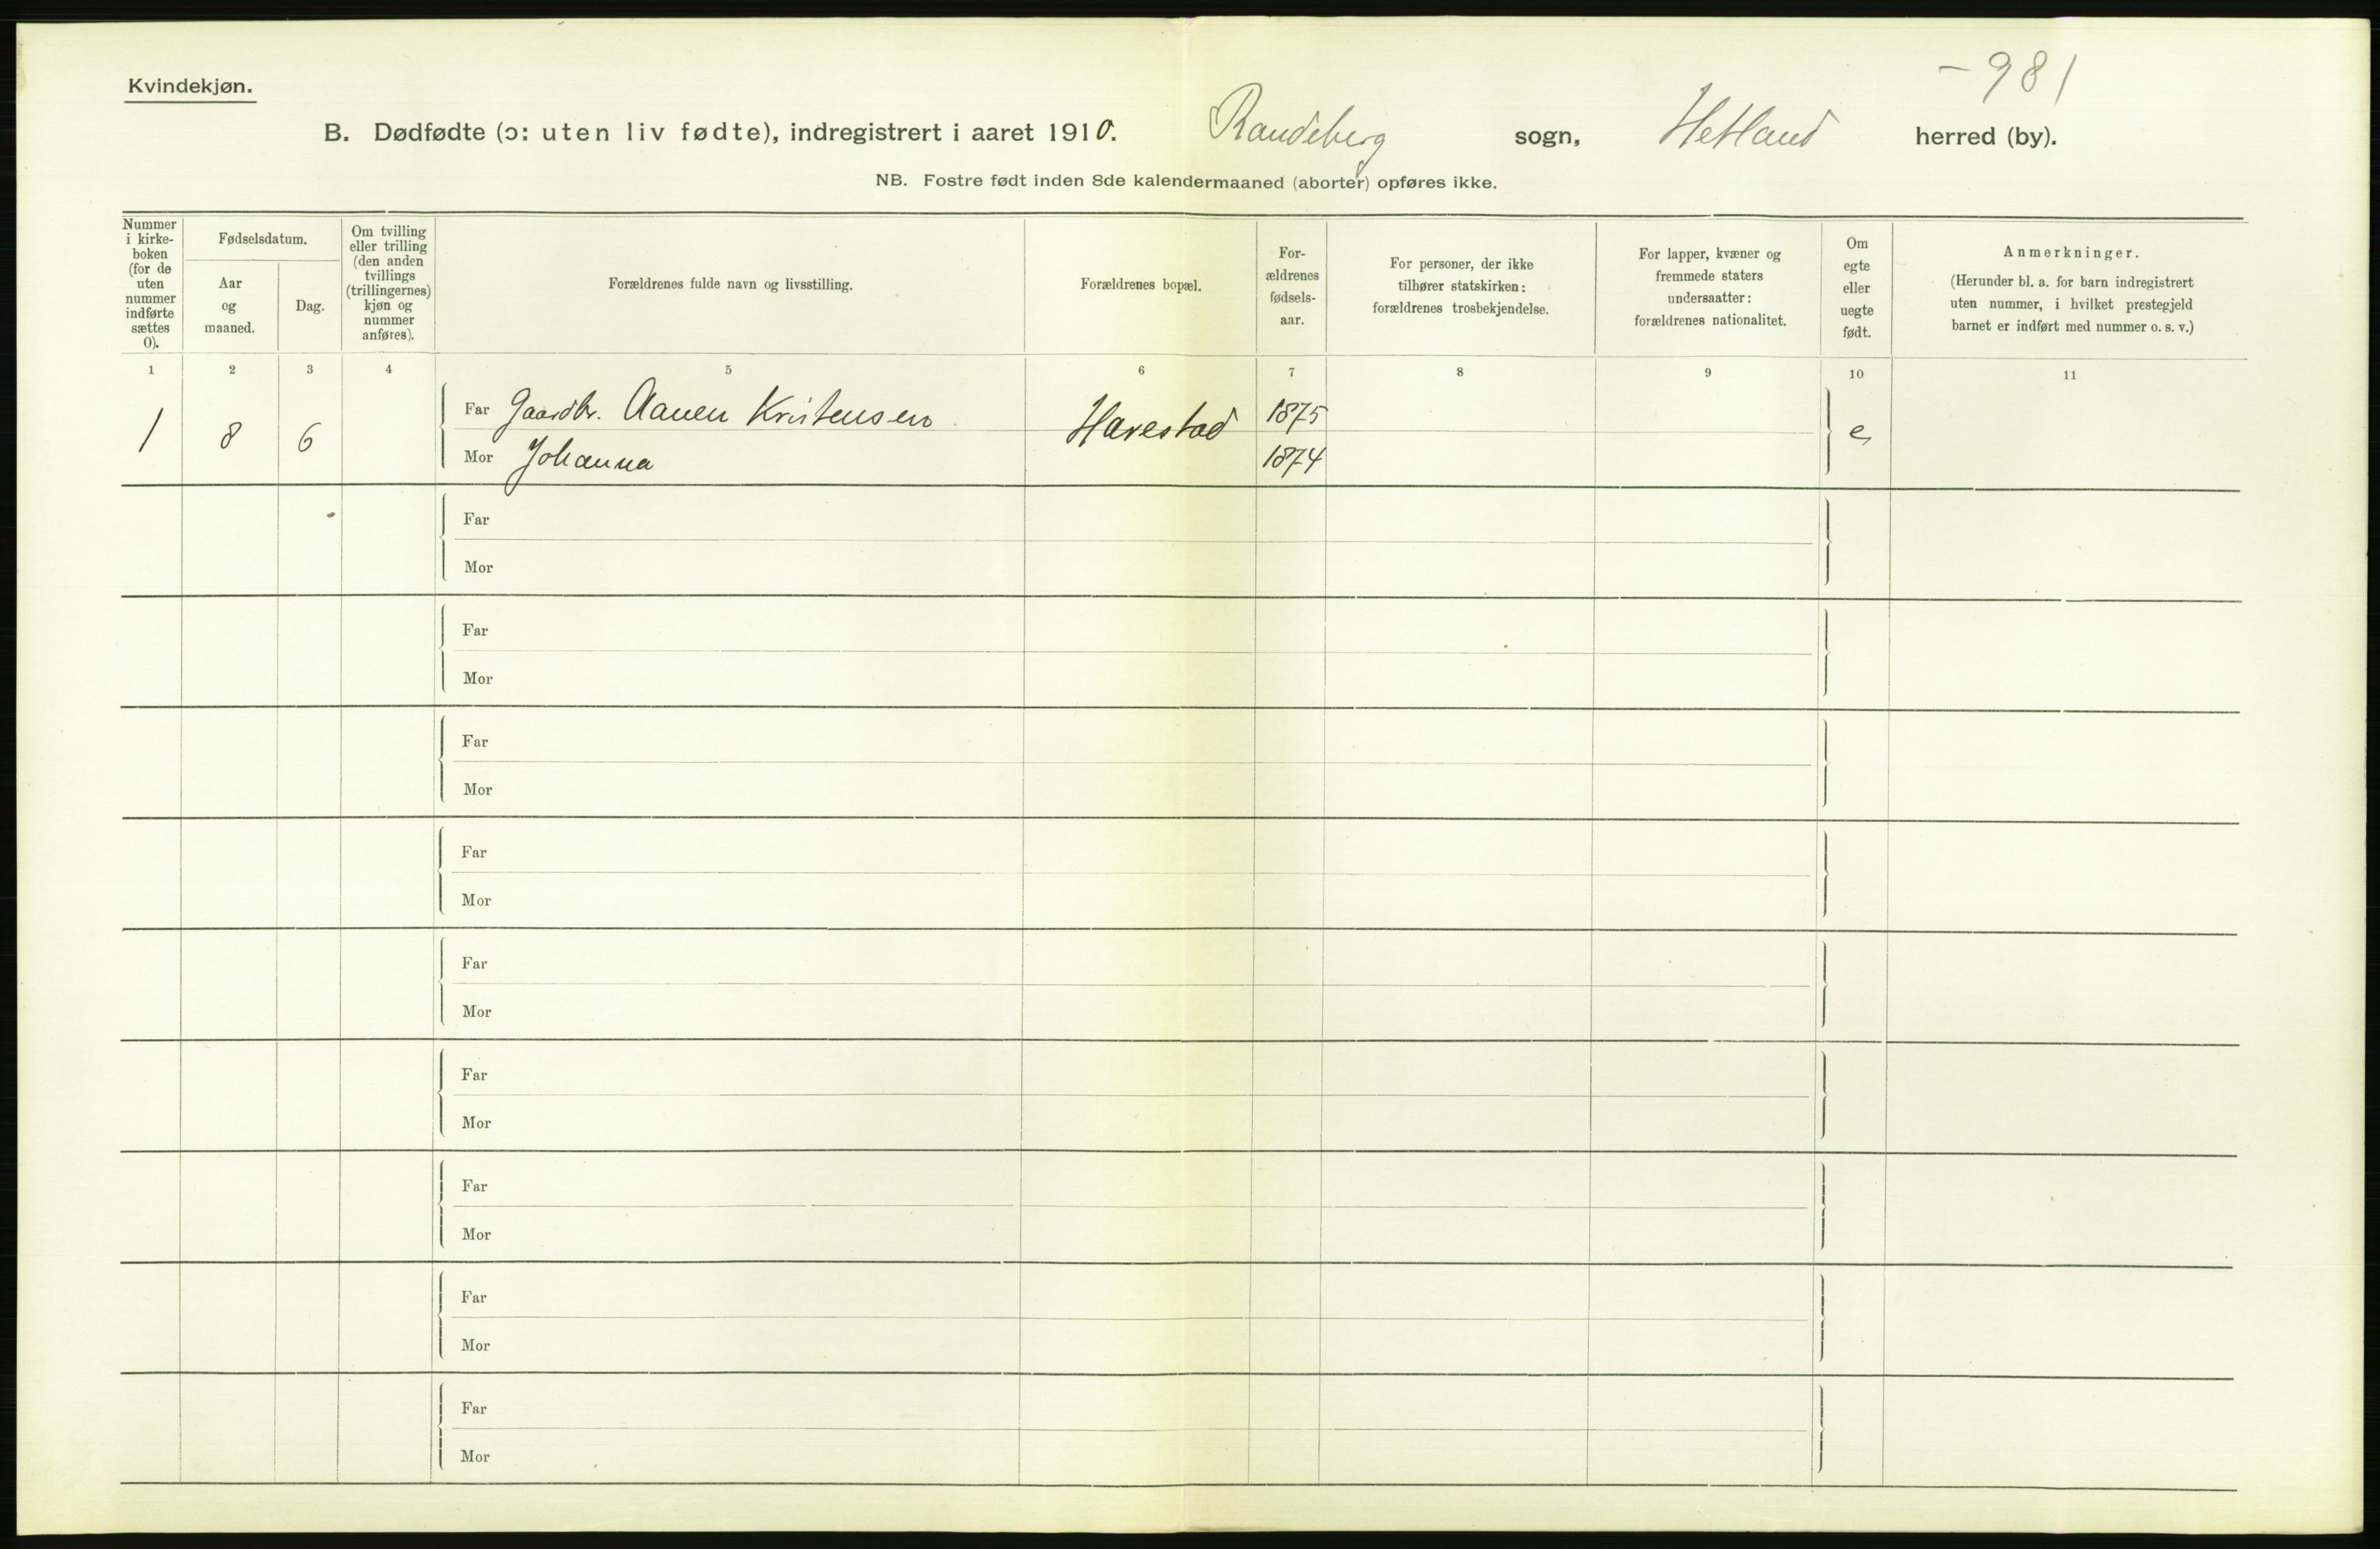 - 981
Kvindekjøn.
B. Dødfødte (ɔ: uten liv fødte), indregistrert i aaret 1910. Randeberg sogn, Hetland herred (by).
NB. Fostre født inden 8de kalendermaaned (aborter) opføres ikke.
Nummer
i kirke-
boken
(for de
uten
nummer
indførte
sættes
0).
Fødselsdatum.
Aar
og
maaned.
Dag.
Om tvilling
eller trilling
(den anden
tvillings
(trillingernes)
kjøn og
nummer
anføres).
Forældrenes fulde navn og livsstilling.
Forældrenes bopæl.
For-
ældrenes
fødsels-
aar.
For personer, der ikke
tilhører statskirken:
forældrenes trosbekjendelse.
For lapper, kvæner og
fremmede staters
undersaatter:
forældrenes nationalitet.
Om
egte
eller
uegte
født.
Anmerkninger.
(Herunder bl. a. for barn indregistrert
uten nummer, i hvilket prestegjeld
barnet er indført med nummer o. s. v.)
1 2 3 4 5 6 7 8 9 10 11
1 8 6 Far Gaardbr. Aanen Kristensen Harestad 1875 e
Mor Johanna 1874
Far
Mor
Far
Mor
Far
Mor
Far
Mor
Far
Mor
Far
Mor
Far
Mor
Far
Mor
Far
Mor